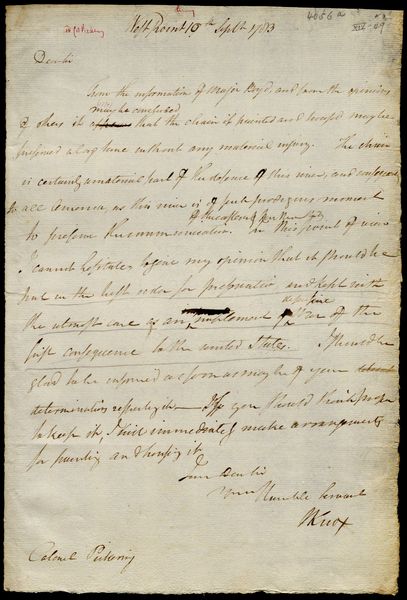 4056a
West Point 10th Sept 1783
Dear Sir
From the information of Major Boyd, and from the opinions
may be concluded
of others it that the chain if painted and housed may be
preserved a long time without any material injury. The chain
is certainly a material part of the defence of this river, and consequently
to all America, as this river is of such prodigious moment
to preserve the communication. in this point of view
I cannot hesitate to give my opinion that it should be
put in the best order for preservation and kept with
defensive
the utmost care as an implement of war of the
first consequence to the united States. I should be
glad to be informed as soon as may be of your
determination respecting it. If you should think proper
to keep it, I will immediately make arrangements
for painting and housing it
I am Dear Sir
Your Humble Servant
HKnox
Colonel Pickering